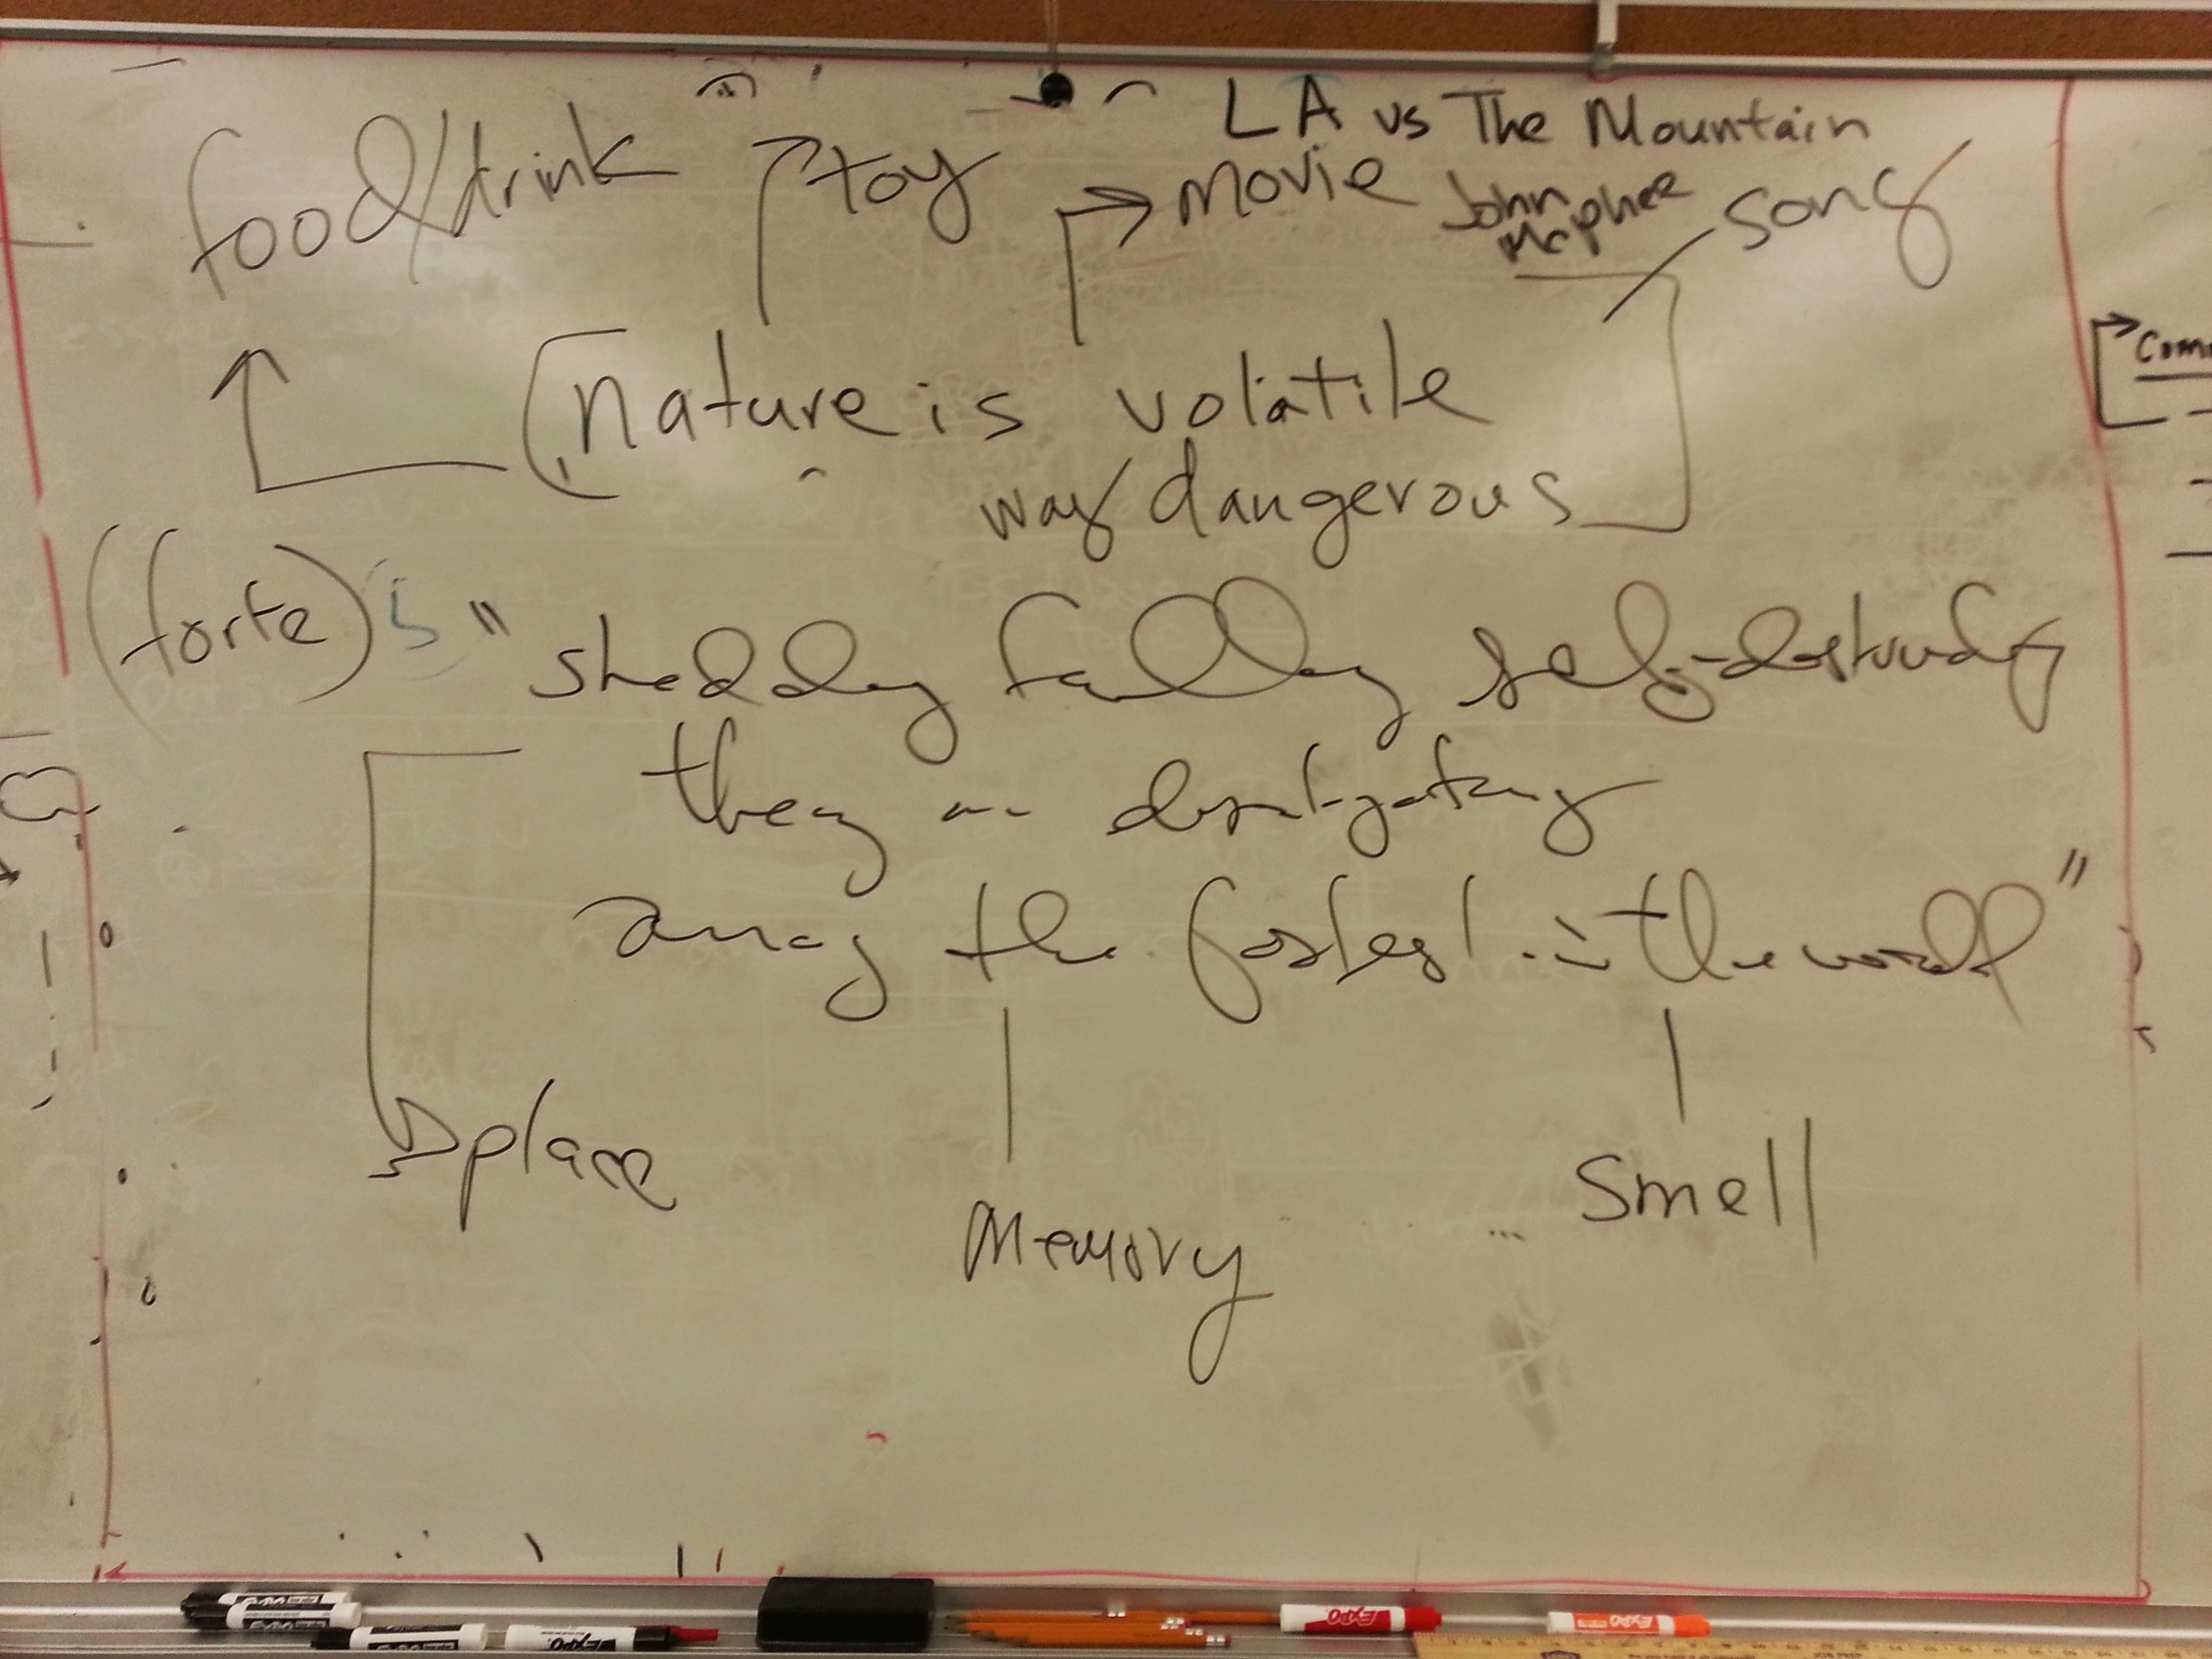 LA vs The Mountain
food/drink toy movie John Mcphee song
nature is volatile
way dangerous
Comm
(forte) is "shedding falling self-destructing
they are disintegrating
among the fastest in the world"
place
Memory
Smell
EXPO
EXPO
EXPO